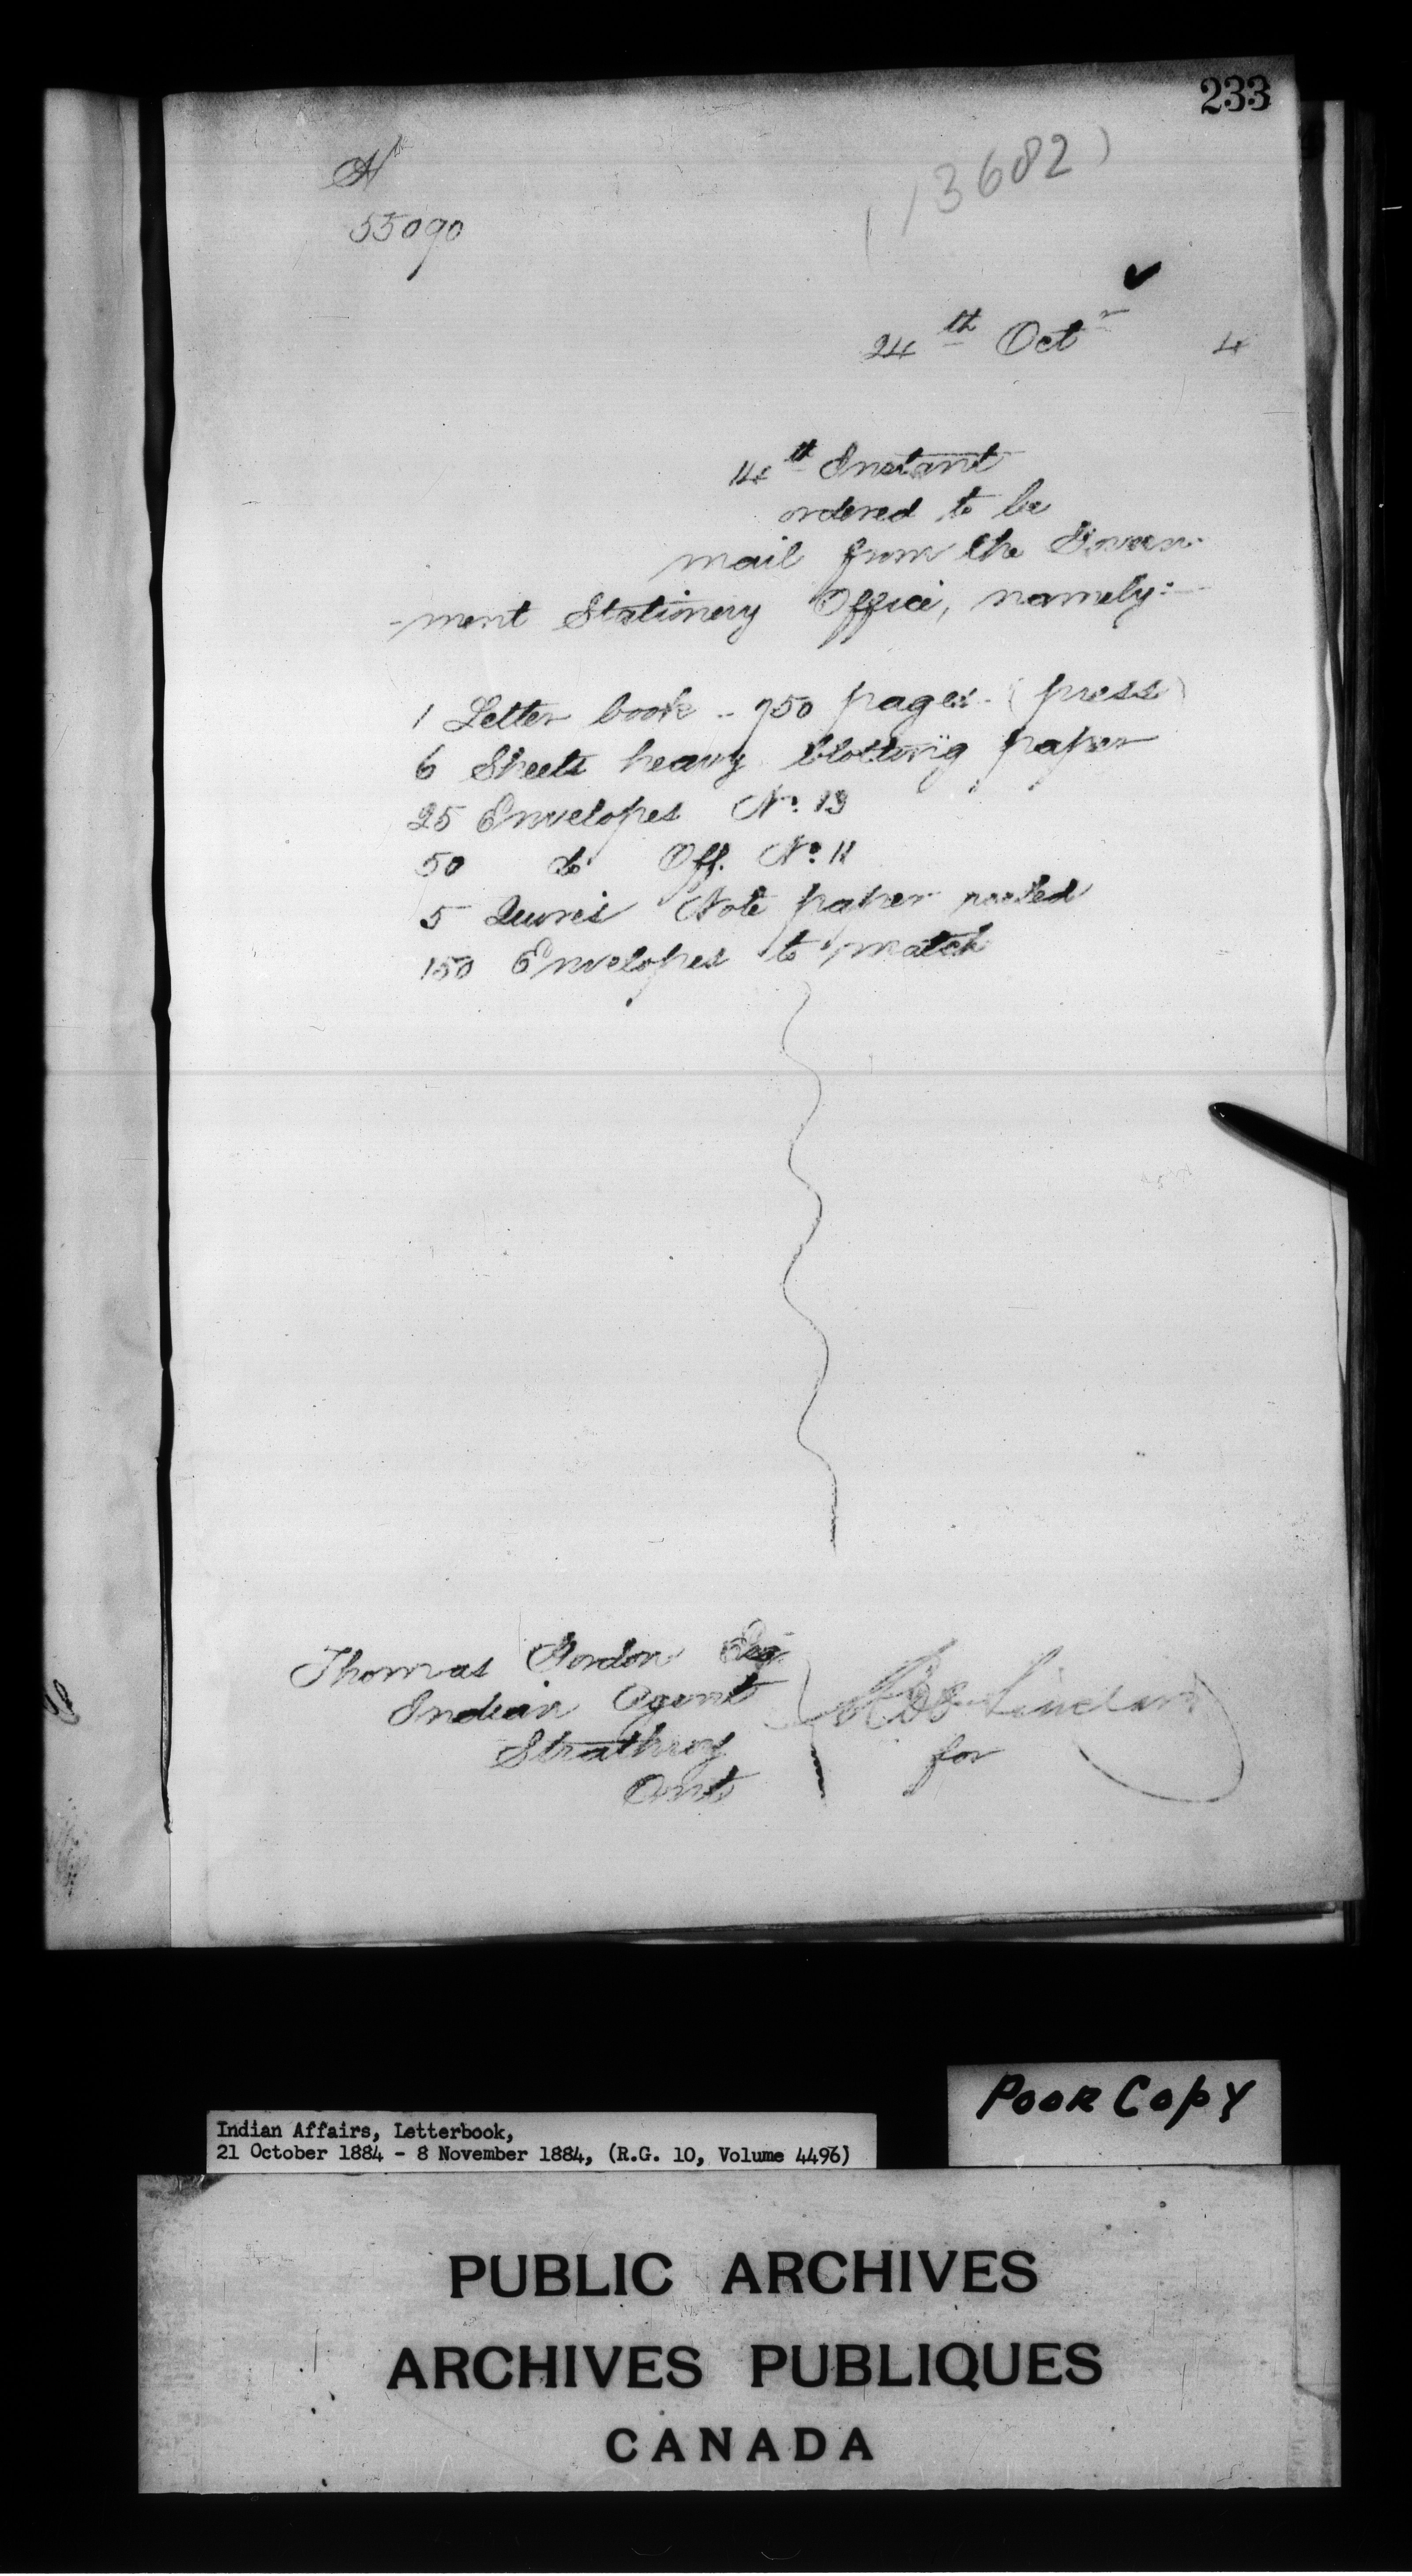 233
No
55090
13682
24th Octr 4
14th Instant
ordered to be
mail from the Govern-
-ment Stationery Office, namely:-
1 Letter book - 750 pages - (press)
6 Sheets heavy blotting paper
25 Envelopes No. 13
50 do Off. No. 11
5 Quires Note paper ruled
150 Envelopes to match
Thomas Gordon Esq
Indian Agent
Strathroy
Ont
Sinclair
for
Poor Copy
Indian Affairs, Letterbook,
21 October 1884 - 8 November 1884, (R.G. 10, Volume 4496)
PUBLIC ARCHIVES
ARCHIVES PUBLIQUES
CANADA